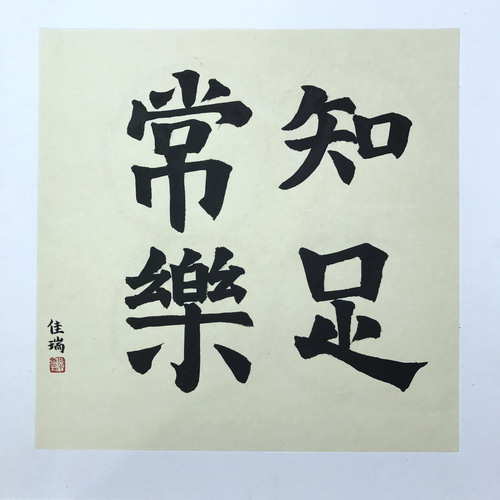 知足
常樂
佳瑞